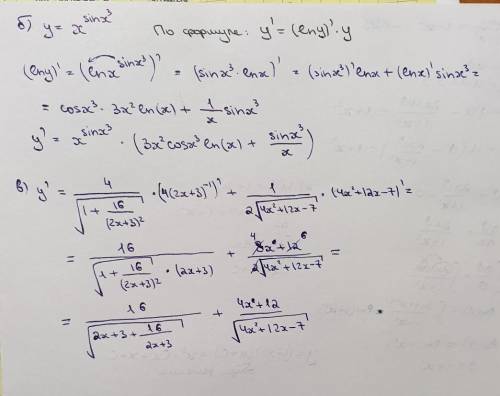 б) y = x^(sinx³) По формуле: y' = (lny)'·y
(lny)' = (lnx^(sinx³))' = (sinx³·lnx)' = (sinx³)'lnx + (lnx)'sinx³ =
= cosx³·3x²ln(x) + 1/x sinx³
y' = x^(sinx³)·(3x²cosx³ln(x) + sinx³/x)
в) y' = 4/√(1 + 16/(2x+3)²)·(4(2x+3)⁻¹)' + 1/(2√(4x²+12x-7))·(4x²+12x-7)' =
= 16/(√(1 + 16/(2x+3)²)·(2x+3)) + (8x+12)/(2√(4x²+12x-7)) =
= 16/√(2x+3 + 16/(2x+3)) + (4x+12)/√(4x²+12x-7)